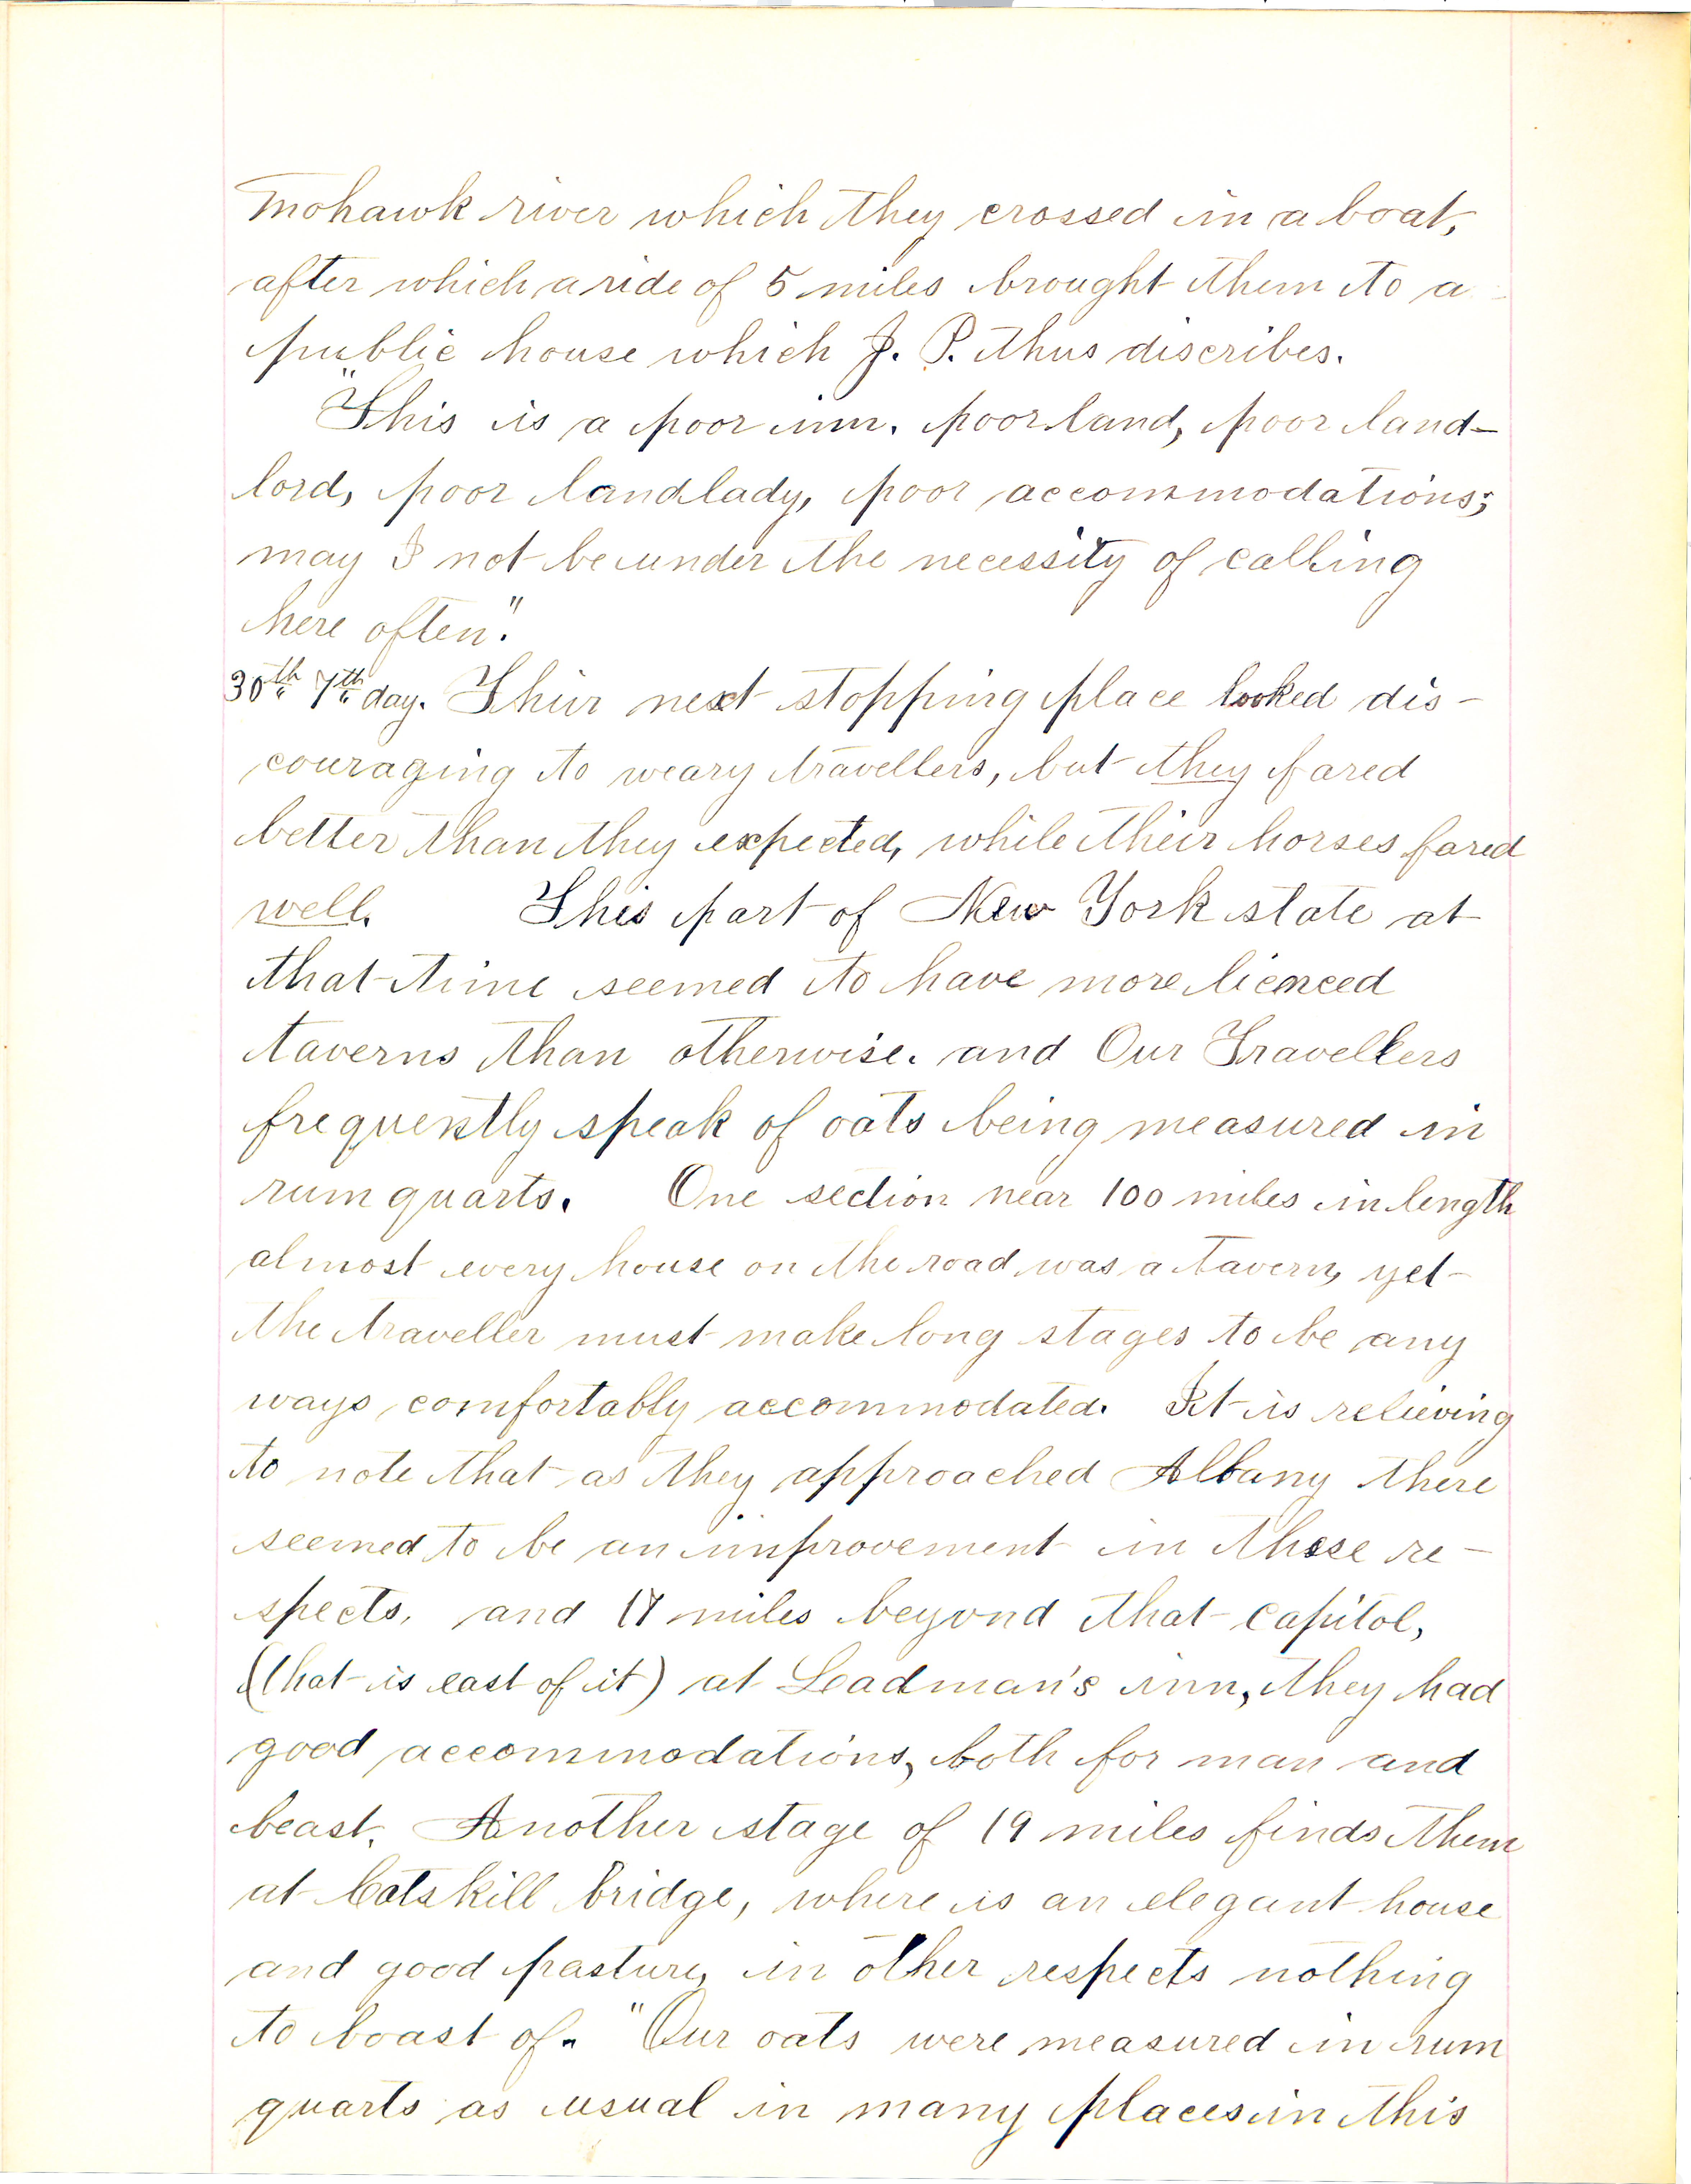 Mohawk river which they crossed in a boat,
after which a ride of 5 miles brought them to a
public house which J. P. thus discribes.
"This is a poor inn. poor land, poor land-
lord, poor landlady, poor accommodations;
may I not be under the necessity of calling
here often."
30th 7th day. Thier next stopping place looked dis-
couraging to weary travellers, but they fared
better than they expected, while their horses fared
well. This part of New York state at
that time seemed to have more licenced
taverns than otherwise. and Our Travellers
frequently speak of oats being measured in
rum quarts. One section near 100 miles in length
almost every house on the road was a tavern, yet
the traveller must make long stages to be any
ways comfortably accommodated. It is relieving
to note that as they approached Albany there
seemed to be an improvement in these re-
spects, and 17 miles beyond that capitol,
(that is east of it) at Leadman's inn, they had
good accommodations, both for man and
beast. Another stage of 19 miles finds them
at Catskill bridge, where is an elegant house
and good pasture, in other respects nothing
to boast of. "Our oats were measured in rum
quarts as usual in many places in this